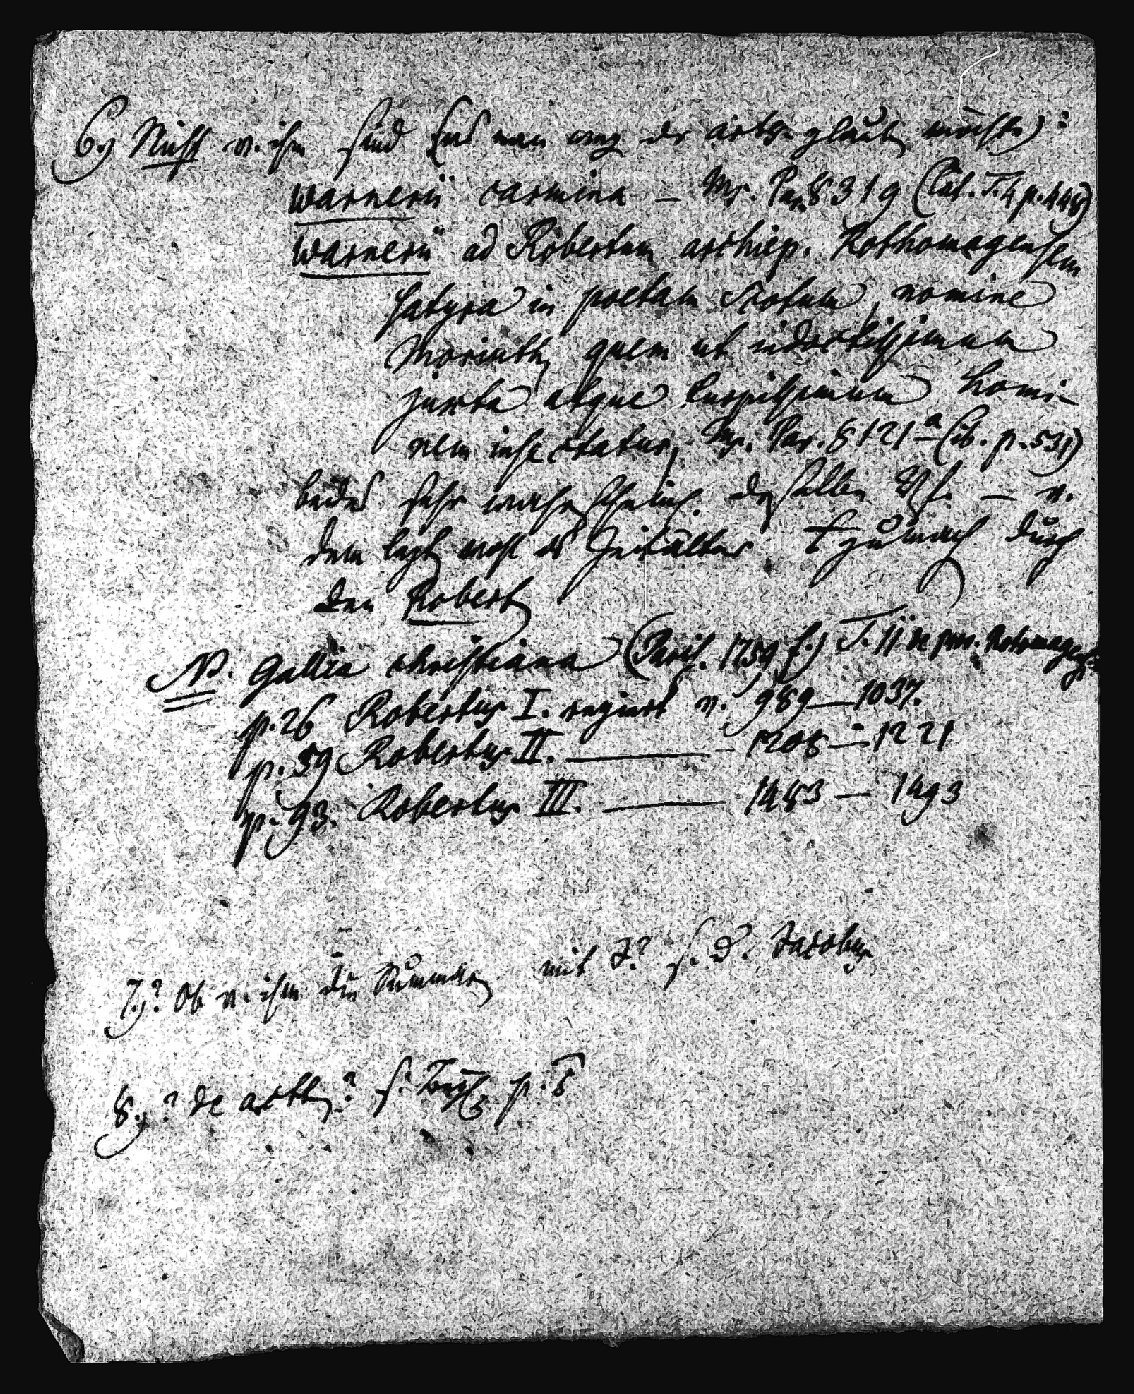 6) Nicht v. ihm sind (was man aus der glauben möchte):
Warnerii carmina — Ms. Par. 8319 (Cat. T. 4 p. 448)
Warnerii ad Robertum archiep. Rothomagensem
Satyra in poetam Scotum, nomine
Moriuth, quem ut
juxta atque turpissimum homi-
nem insectatur, Ms. Par. 8121a (ib. p. 531)
beides sehr wahrscheinlich desselben Vf. — u.
dem legt wohl das Zeitalter fest durch
den Robert
NB. Gallia christiana (Paris. 1759 f.) T. 11
p. 26 Robertus I. regiert v. 989—1037.
p. 59 Robertus II. —— 1208—1221
p. 93. Robertus III. —— 1483 — 1493
7.)? Ob v. ihm die Summa mit J.? s. d. Jacobus
8.) ? de s. p. 8